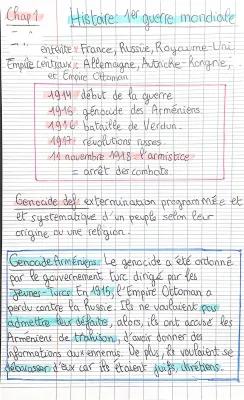 Chap 1 Histoire: 1er guerre mondiale
entente: France, Russie, Royaume-Uni
Empire Centraux: Allemagne, Autriche-Hongrie,
et Empire Ottoman
1914 début de la guerre
1915 génocide des Arméniens
1916 bataille de Verdun.
1917 révolutions russes
11 novembre 1918 l'armistice
= arrêt des combats
Génocide def: extermination programmée et
et systématique d'un peuple selon leur
origine ou une religion.
Génocide Arméniens: Le génocide a été ordonné
par le gouvernement turc dirigé par les
Jeunes-Turcs. En 1915, l'Empire Ottoman a
perdu contre la Russie. Ils ne voulaient pas
admettre leur défaite, alors, ils ont accusé les
Arméniens de trahison, d'avoir donner des
informations aux ennemis. De plus, ils voulaient se
débarasser d'eux car ils étaient juifs, chrétiens.